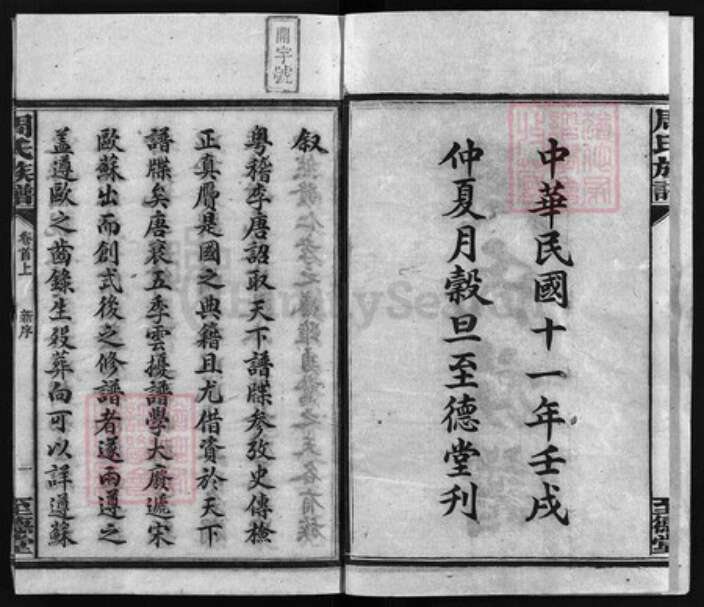 中華民國十一年壬戌
仲夏月穀旦至德堂刊
周氏族譜
至德堂
開字號
叙
粵稽李唐詔取天下譜牒參攷史傳檢
正真贗是國之典籍且尤借資於天下
譜牒矣唐衰五季雲擾譜學大廢遞宋
歐蘇出而創式後之修譜者遂兩遵之
蓋遵歐之齒錄生歿葬向可以詳遵蘇
周氏族譜
卷首上
新序
一
至德堂
FamilySearch